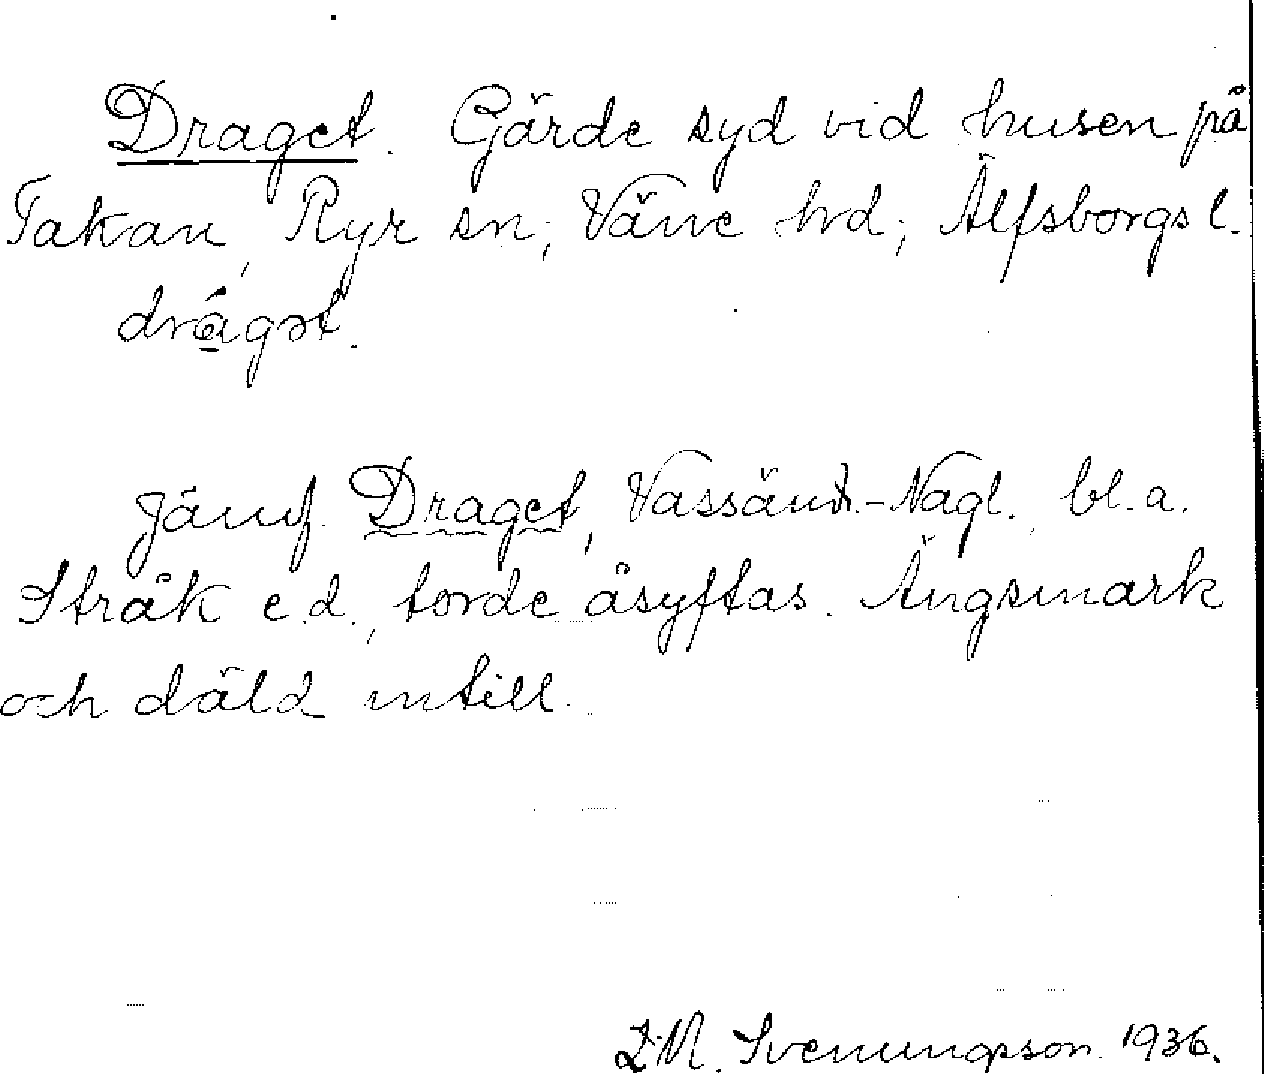 Draget. Gärde syd vid husen på
Takan, Ryr sn; Väne hrd; Älfsborgs l.
drágət.
Jämf. Draget, Vassänd.-Nagl., bl.a.
Stråk e.d., torde åsyftas. Ängsmark
och däld intill.
Svenungsson 1936.